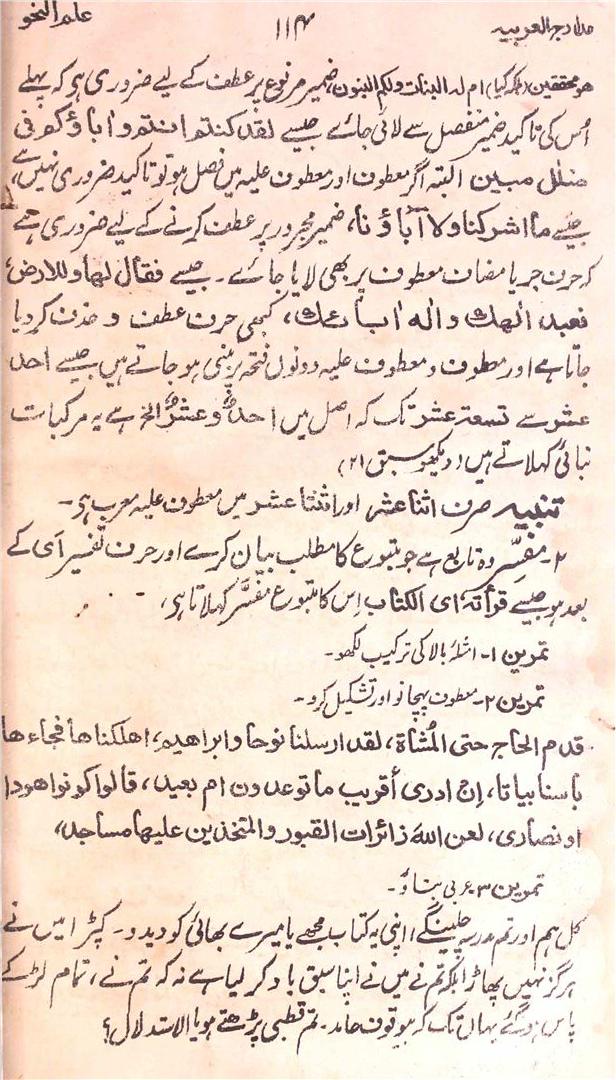 مدارج العربیہ ۱۱۴ علم النحو
ھو محققین (بلکہ کیا) ام لہ البنات ولکم البنون، ضمیر مرفوع پر عطف کے لیے ضروری ہی کہ پہلے
اُس کی تاکید ضمیر منفصل سے لائی جائے جیسے لقد کنتم انتم واٰباؤکم فی
ضلٰل مبین البتہ اگر معطوف اور معطوف علیہ میں فصل ہو تو تاکید ضروری نہیں
جیسے ما اشرکنا ولا آباؤنا، ضمیر مجرور پر عطف کرنے کے لیے ضروری ہے
کہ حرف جر یا مضاف معطوف پر بھی لایا جائے۔ جیسے فقال لھا وللارض،
نعبد الٰھک والٰہ اٰبائک، کبھی حرف عطف و حذف کر دیا
جاتا ہے اور معطوف و معطوف علیہ دونوں فتحہ پر مبنی ہو جاتے ہیں جیسے احد
عشر سے تسعۃ عشر تک کہ اصل میں احدٌ وعشرٌ الخ ہے یہ مرکبات
بنائی کہلاتے ہیں (دیکھو سبق ۲۱)
تنبیہ صرف اثنا عشر اور اثنتا عشر میں معطوف علیہ معرب ہی۔
۲۔ مفسِّر وہ تابع ہے جو متبوع کا مطلب بیان کرے اور حرف تفسیر اَی کے
بعد ہو جیسے قرأتہ ای الکتاب اِس کا متبوع مفسَّر کہلاتا ہی،
تمرین ۱۔ امثلۂ بالا کی ترکیب لکھو۔
تمرین ۲۔ معطوف پہچانو اور تشکیل کرو۔
قدم الحاج حتی المُشاۃ، لقد ارسلنا نوحا وابراھیم، اھلکناھا فجاءھا
بأسنا بیاتا، اِن ادری أقریب ما توعدون ام بعید، قالوا کونوا ھودا
او نصاری، لعن اللہ زائرات القبور والمتخذین علیھا مساجد،
تمرین ۳۔ عربی بناؤ۔
کل ہم اور تم مدرسہ چلینگے، اپنی یہ کتاب مجھے یا میرے بھائی کو دیدو۔ کپڑا میں نے
ہرگز نہیں پھاڑا بلکہ تم نے میں نے اپنا سبق یاد کر لیا ہے نہ کہ تم نے، تمام لڑکے
پاس ہو گئے یہاں تک کہ بیوقوف حامد۔ تم قطبی پڑھتے ہو یا الاستدلال؟